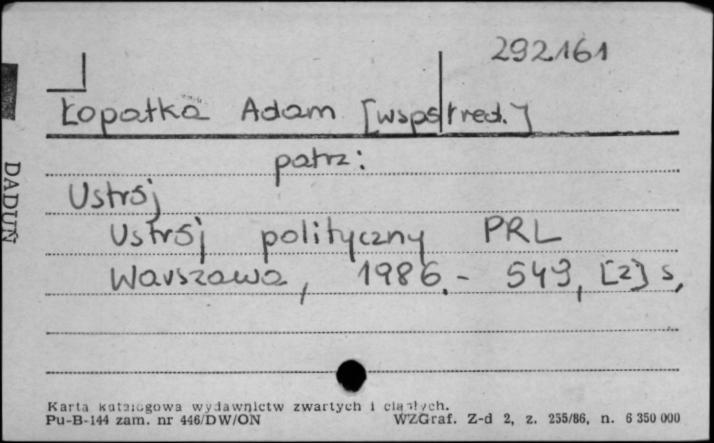 292161
Łopatka Adam [współred.]
patrz:
Ustrój
Ustrój polityczny PRL
Warszawa, 1986.- 549, [2] s,
DADUŃ
Karta katalogowa wydawnictw zwartych i ciągłych.
Pu-B-144 zam. nr 446/DW/ON WZGraf. Z-d 2, z. 255/86, n. 6 350 000